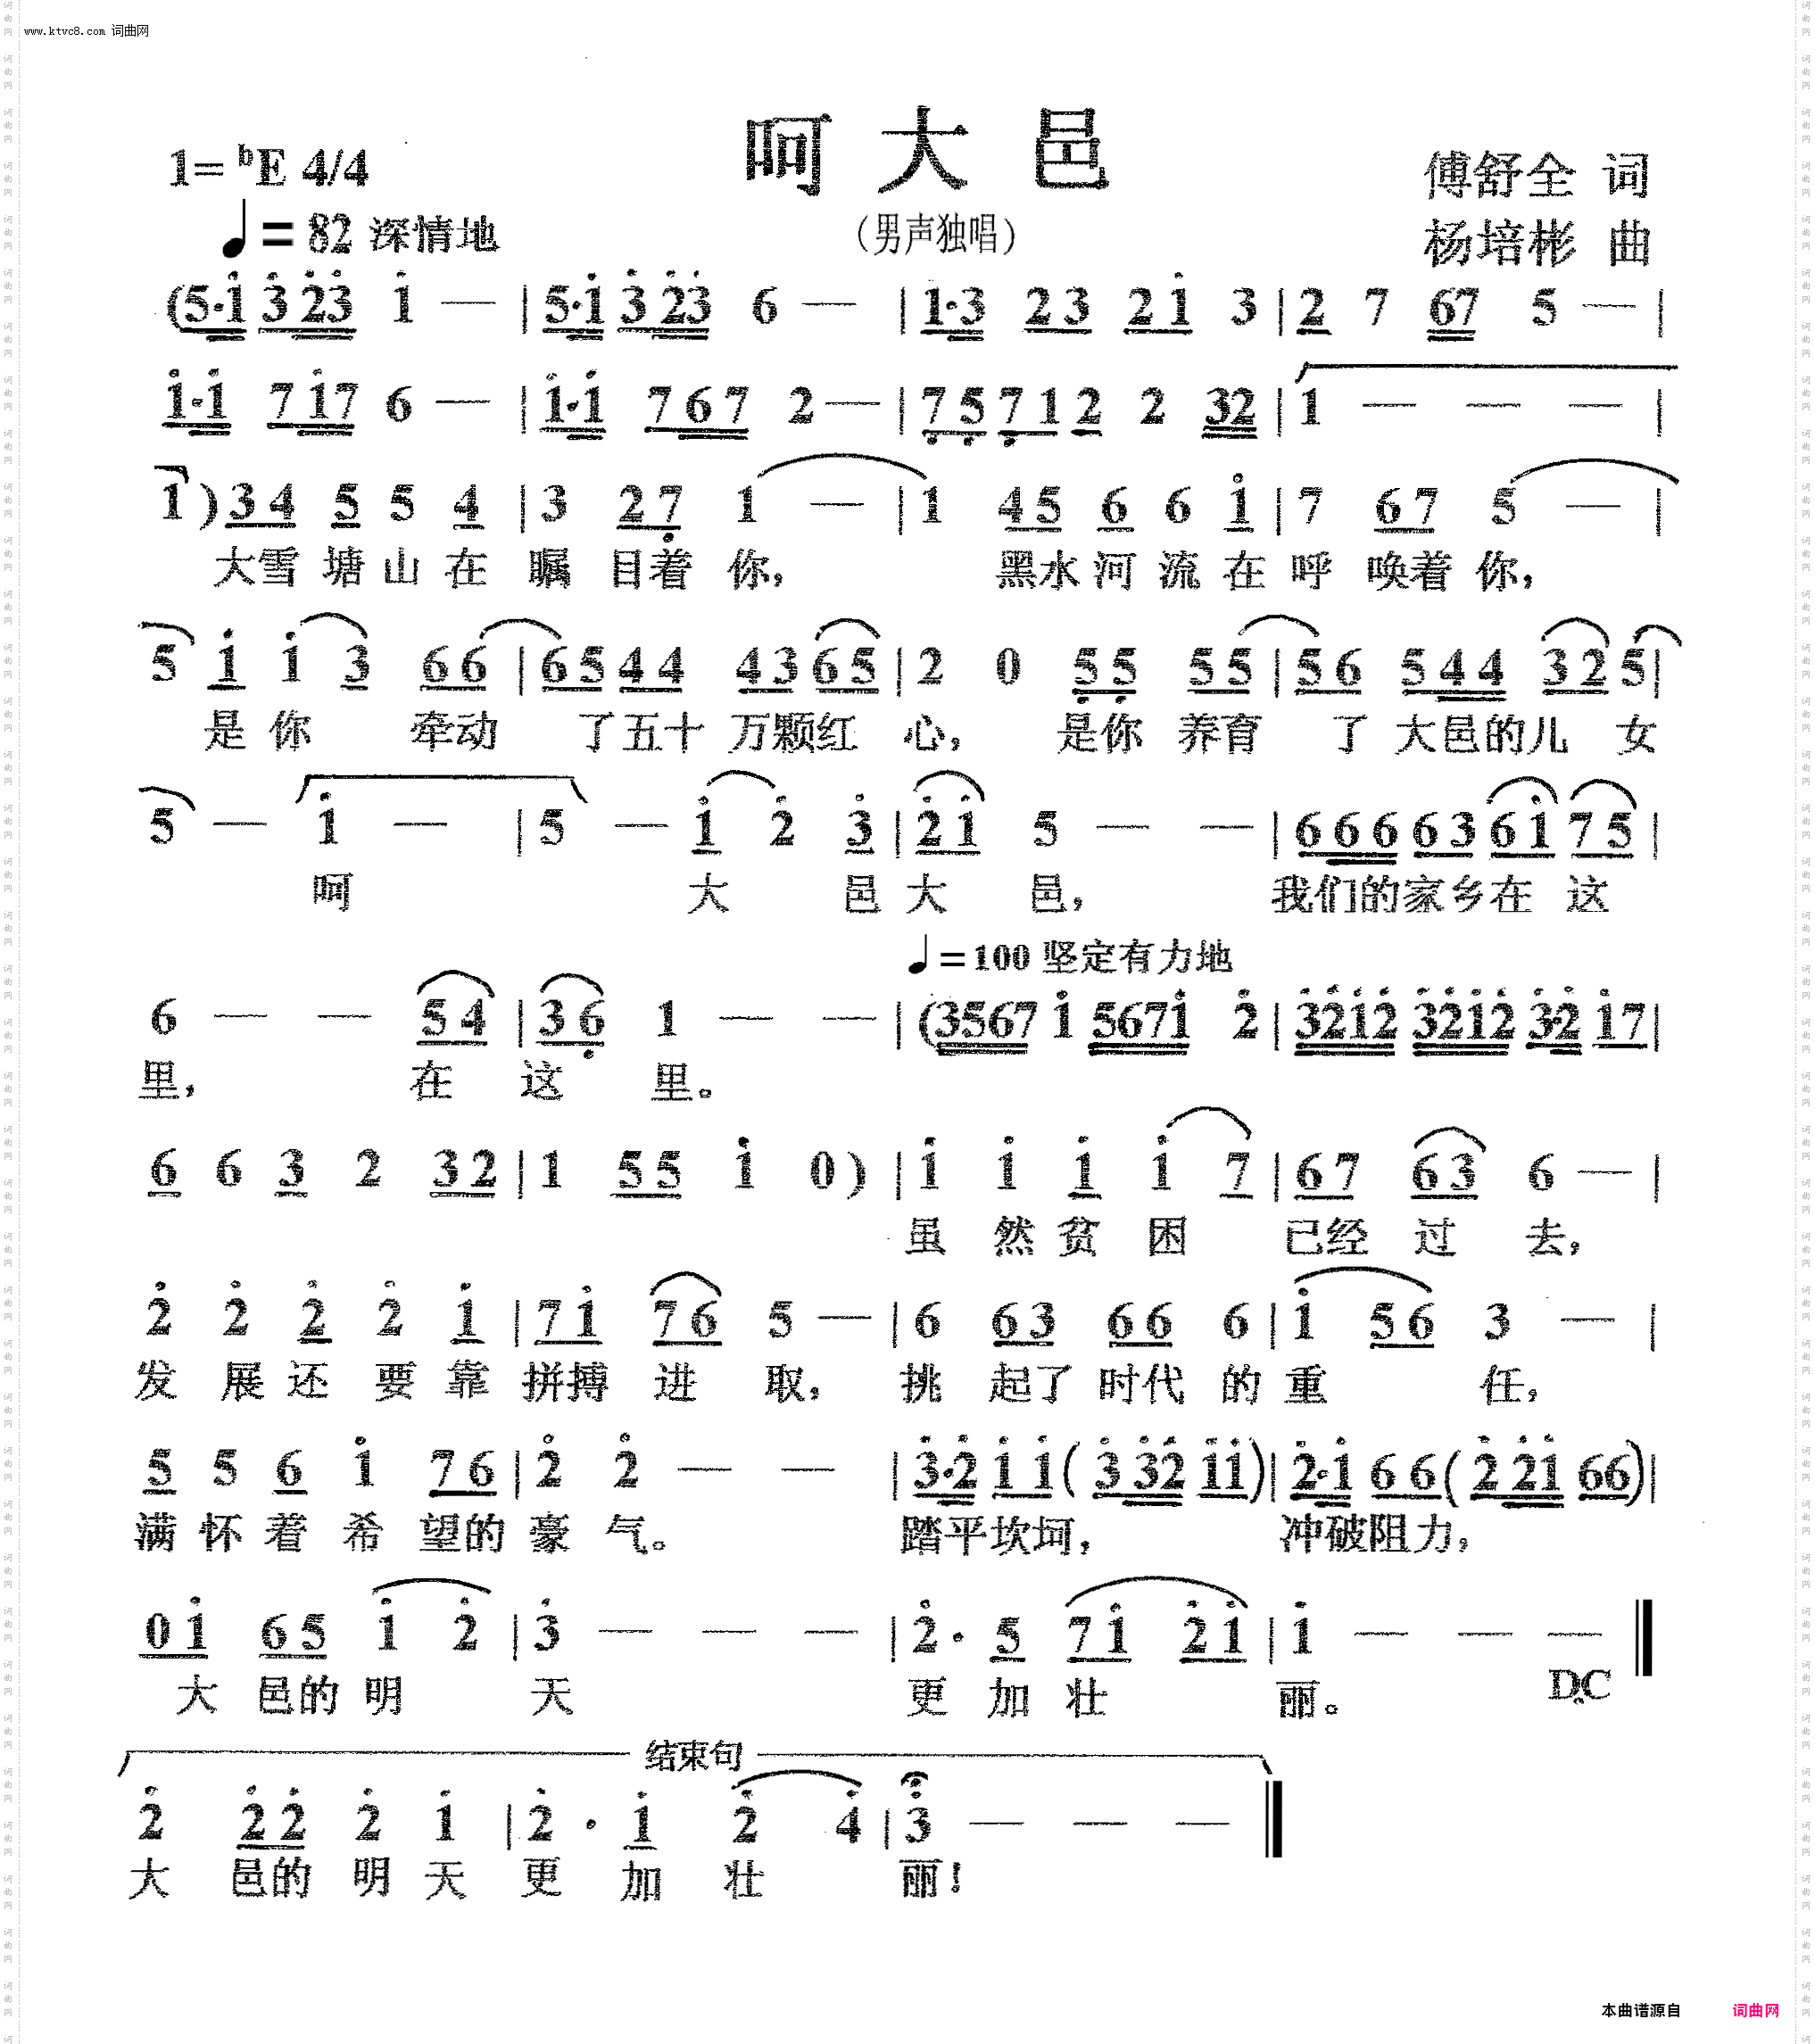 www.ktvc8.com 词曲网
呵大邑
1=♭E 4/4
♩=82 深情地
(男声独唱)
傅舒全 词
杨培彬 曲
(5·i 3 23 i — | 5·i 3 23 6 — | 1·3 23 2i 3 | 2 7 67 5 — |
i·i 7i7 6 — | i·i 767 2 — | 75 71 2 2 32 | 1 — — — |
1) 34 5 5 4 | 3 27 1 — | 1 45 6 6 i | 7 67 5 — |
大雪 塘 山 在 瞩 目着 你, 黑水 河 流 在 呼 唤着 你,
5 i i 3 66 | 65 44 43 65 | 2 0 55 55 | 56 544 32 5 |
是 你 牵动 了五十 万颗红 心, 是你 养育 了 大邑的儿 女
5 — i — | 5 — i 2 3 | 2i 5 — — | 666 63 6i 75 |
呵 大 邑 大 邑, 我们的家乡在 这
♩=100 坚定有力地
6 — — 54 | 36 1 — — | (3567 i 567i 2 | 32i2 32i2 3·2 i7 |
里, 在 这 里。
6 6 3 2 32 | 1 55 i 0) | i i i i 7 | 67 63 6 — |
虽 然 贫 困 已经 过 去,
2 2 2 2 i | 7i 76 5 — | 6 63 66 6 | i 56 3 — |
发 展 还 要 靠 拼搏 进 取, 挑 起了 时代 的 重 任,
5 5 6 i 76 | 2 2 — — | 3·2 ii (3 32 ii) | 2·i 66 (2 2i 66) |
满 怀 着 希 望的 豪 气。 踏平坎坷, 冲破阻力,
0i 65 i 2 | 3 — — — | 2· 5 7i 2i | i — — —
大 邑的 明 天 更 加 壮 丽。 D.C
结束句
2 22 2 i | 2· i 2 4 | 3 — — —
大 邑的 明 天 更 加 壮 丽!
本曲谱源自 词曲网